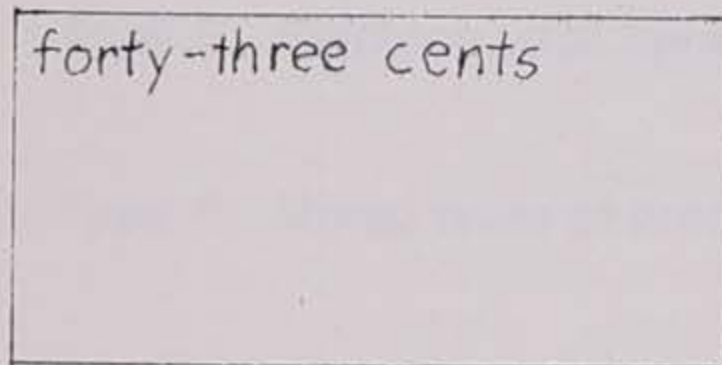 forty-three cents